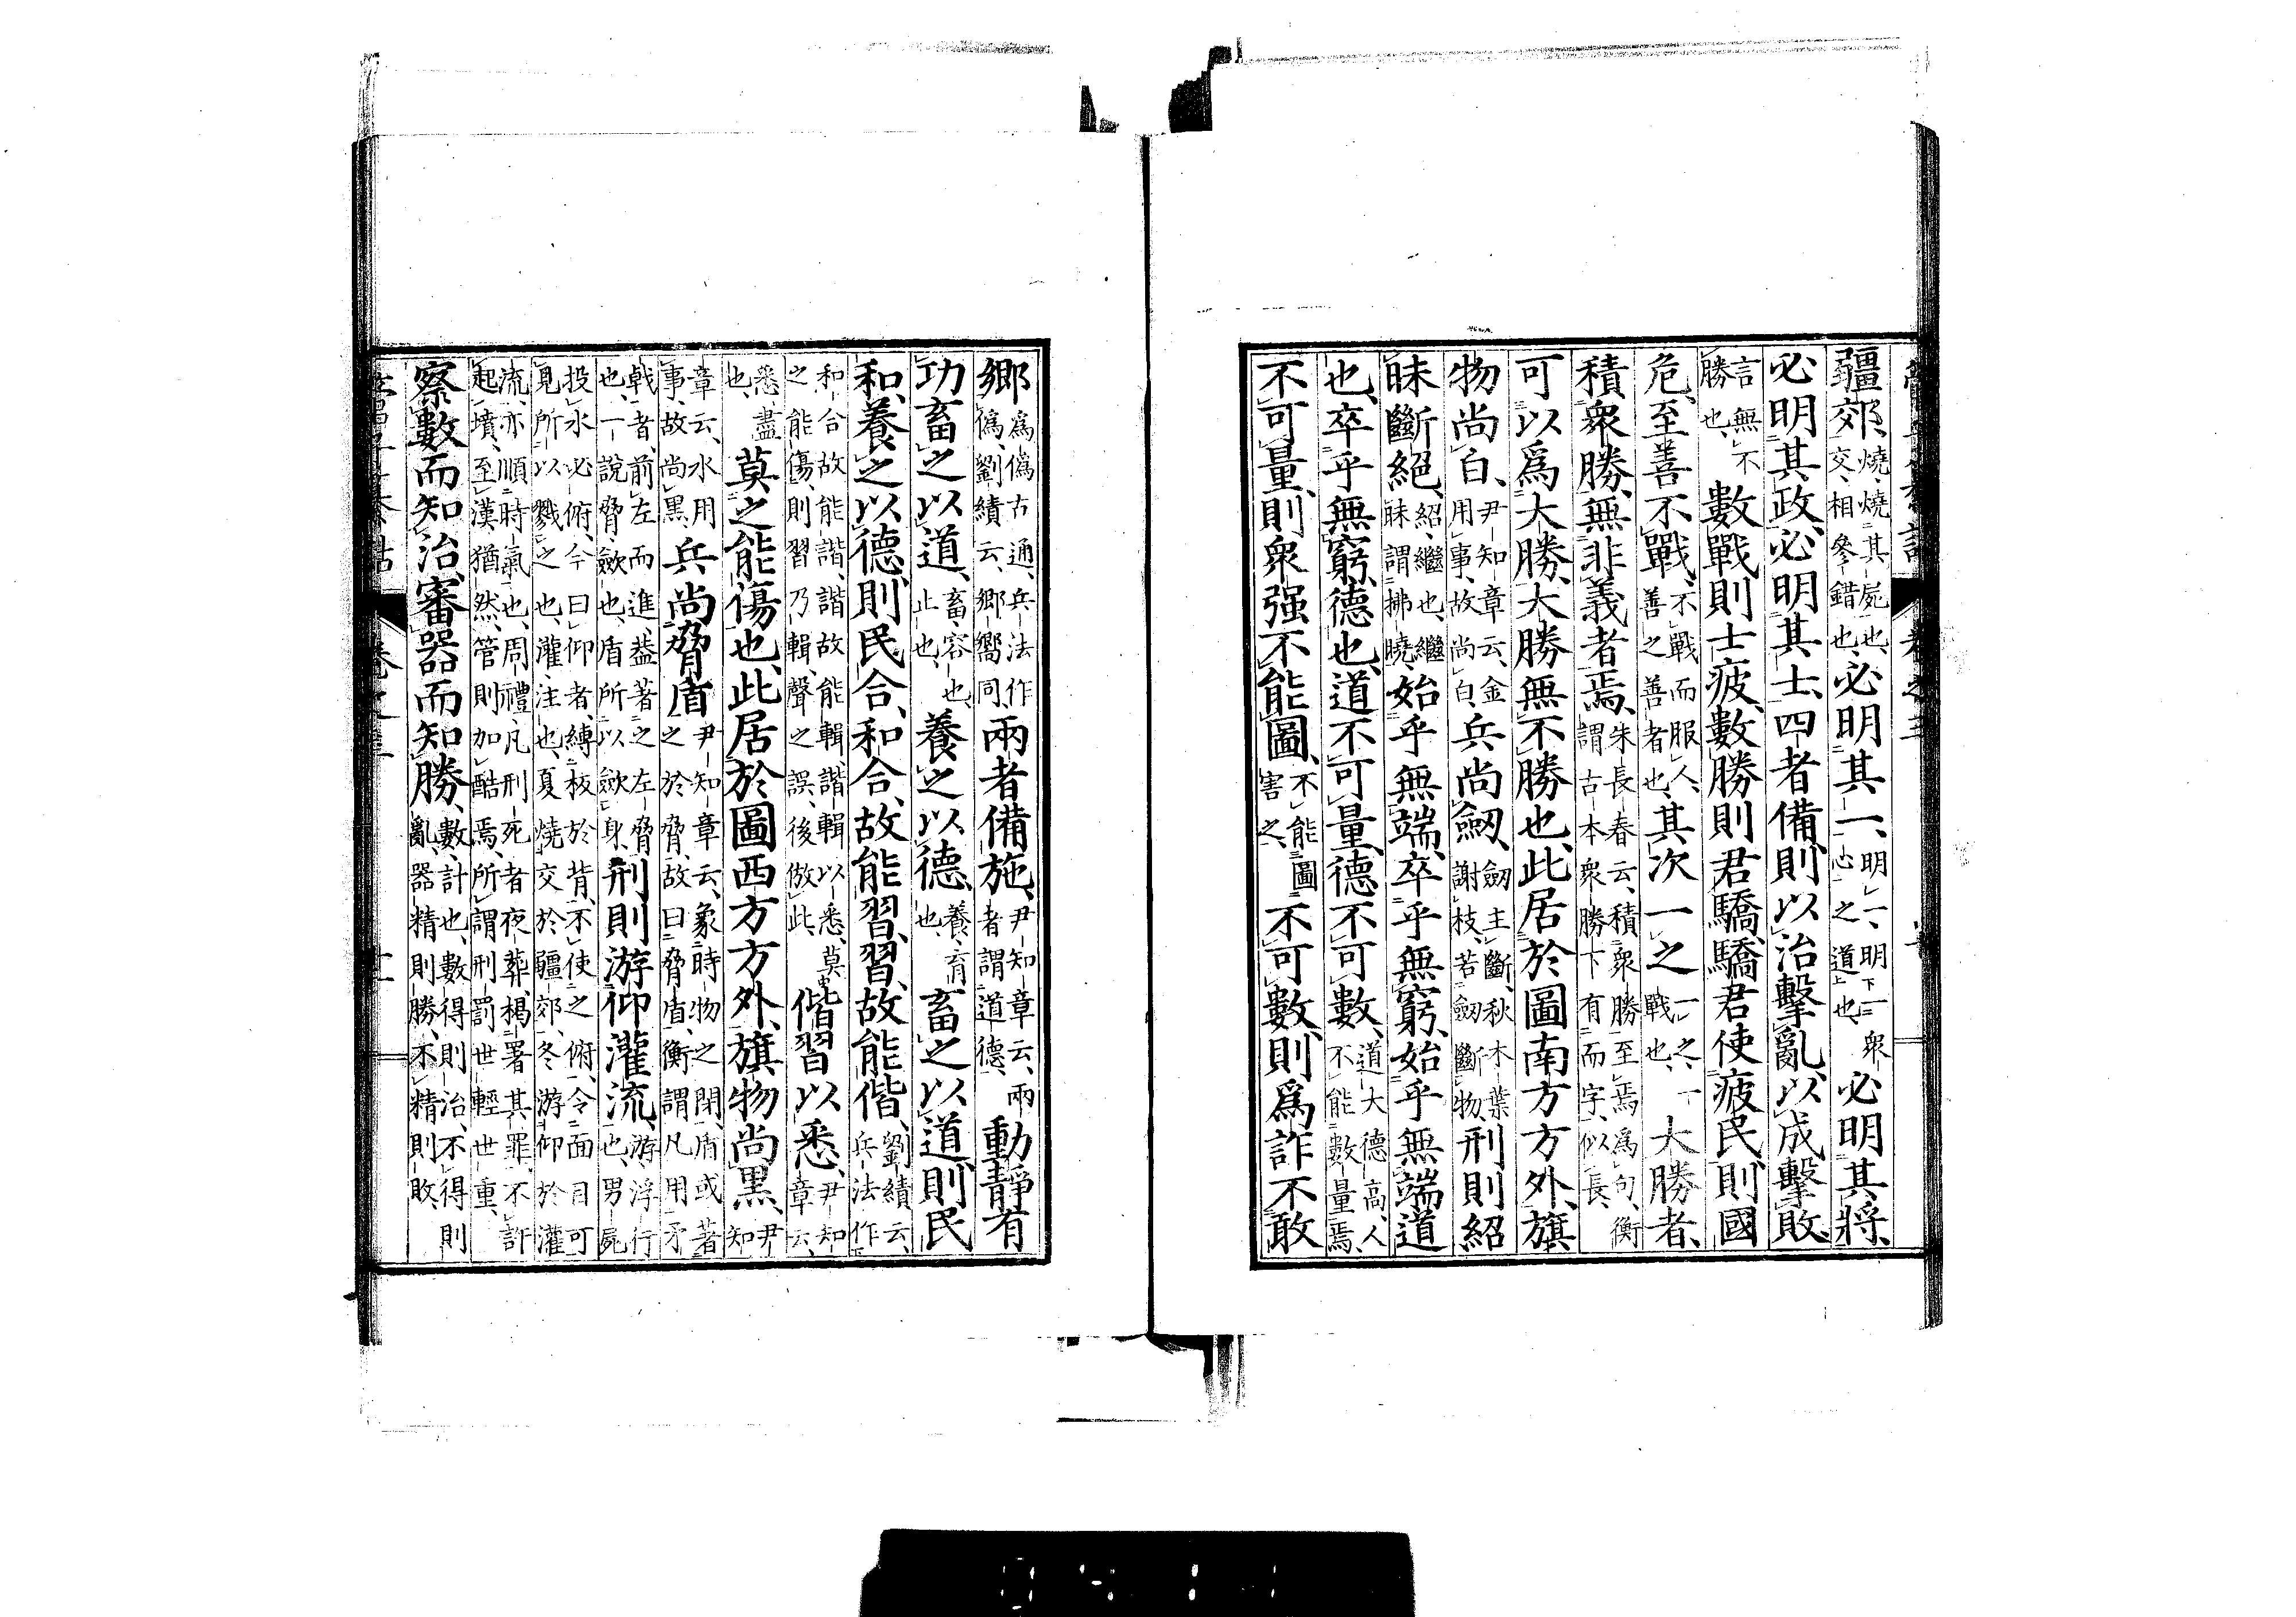 疆郊、燒、燒其屍也、
交、相參錯也、必明其一、明一、明一衆
心之道也、必明其將、
必明其政、必明其士、四者備、則以治擊亂、以成擊敗、
言無不
勝也、數戰則士疲、數勝則君驕、驕君使疲民、則國
危、至善不戰、不戰而服人、
善之善者也、其次一之、一之、一
戰也、大勝者、
積衆勝、無非義者焉、朱長春云、積衆勝至焉爲句、衡
謂古本衆勝下有而字、似長、
可以爲大勝、大勝無不勝也、此居於圖南方方外、旗
物尚白、尹知章云、金
用事、故尚白、兵尚劒、劒主斷、秋木葉
謝枝、若劒斷物、刑則紹
昧斷絕、紹、繼也、繼
昧謂拂曉、始乎無端、卒乎無窮、始乎無端道
也、卒乎無窮、德也、道不可量、德不可數、道大德高、人
不能數量焉、
不可量、則衆强不能圖、不能圖
害之、不可數、則爲詐不敢
鄉爲僞古通、兵法作
僞、劉績云、鄉嚮同、兩者備施、尹知章云、兩
者謂道德、動靜有
功、畜之以道、畜、容也、
止也、養之以德、養、育
也、畜之以道、則民
和、養之以德、則民合、和合、故能習、習、故能偕、劉績云、
兵法作
和合故能諧、諧故能輯、諧輯以悉、莫
之能傷、則習乃輯聲之誤、後倣此、偕習以悉、尹知
章云、
悉、盡
也、莫之能傷也、此居於圖西方方外、旗物尚黑、尹知
章云、水用
事、故尚黑、兵尚脅盾、尹知章云、象時物之閉、盾或著
之於脅、故曰脅盾、衡謂凡用矛
戟者、前左而進、葢著之左脅
也、一說脅、歛也、盾所以歛身、刑則游仰灌流、游、浮行
也、男屍
投水必俯、今曰仰者、縛板於背、不使之俯、令面目可
見、所以戮之也、灌、注也、夏燒交於疆郊、冬游仰於灌
流、亦順時氣也、周禮、凡刑死者夜葬、楬署其罪、不許
起墳、至漢猶然、管則加酷焉、所謂刑罰世輕世重、
察數而知治、審器而知勝、數、計也、數得則治、不得則
亂、器精則勝、不精則敗、